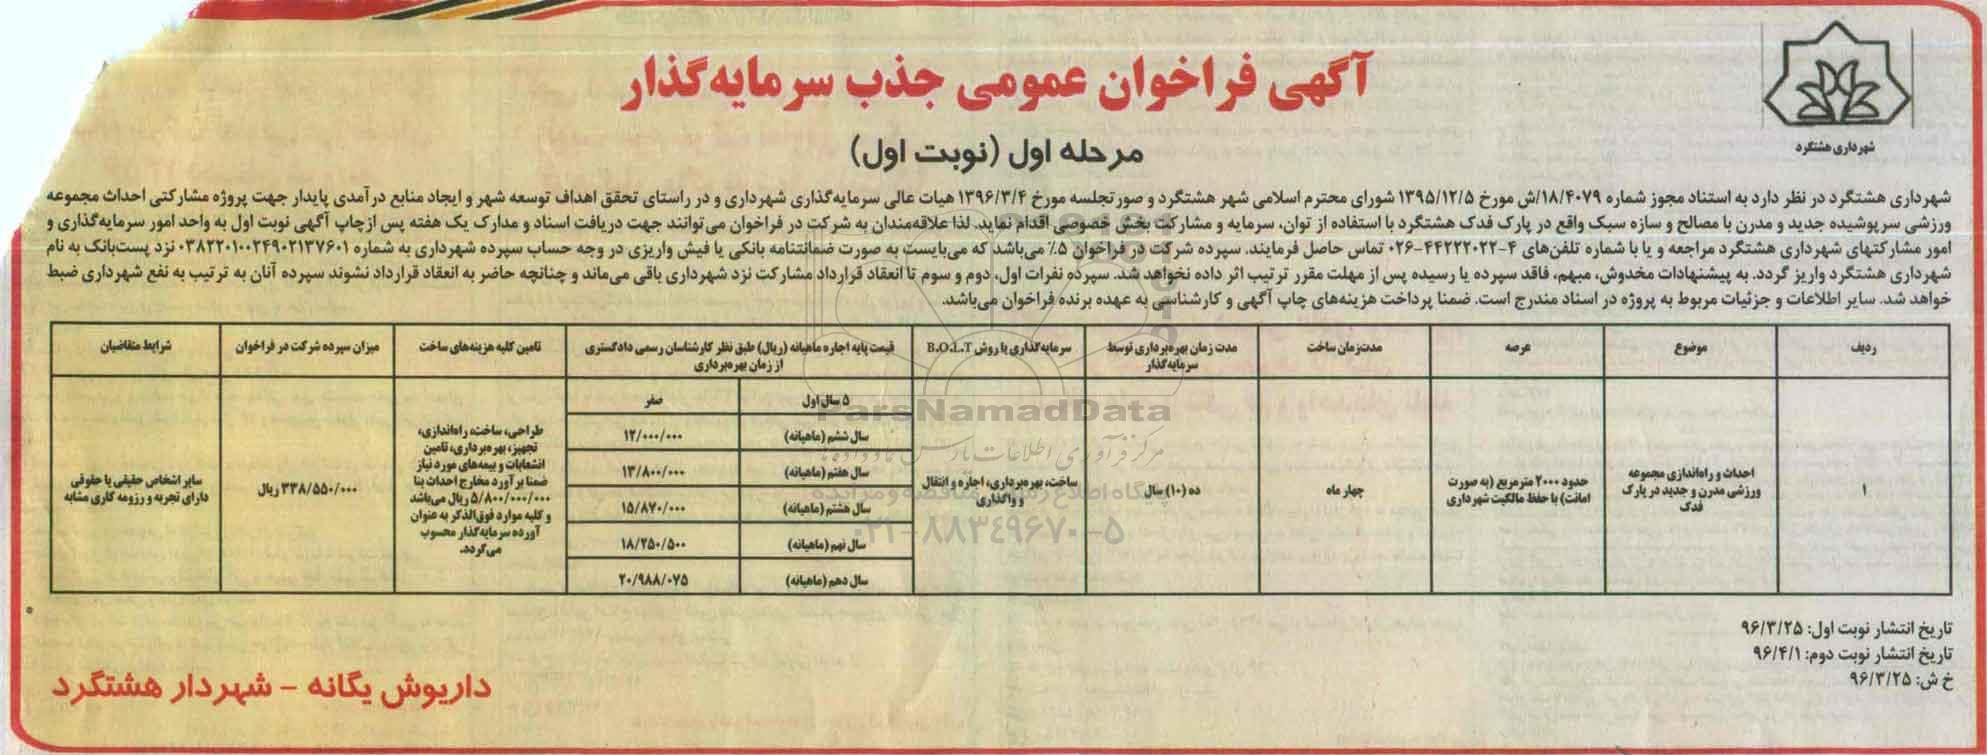 آگهی فراخوان عمومی جذب سرمایه‌گذار
مرحله اول (نوبت اول)
شهرداری هشتگرد
شهرداری هشتگرد در نظر دارد به استناد مجوز شماره ۱۸/۴۰۷۹/ش مورخ ۱۳۹۵/۱۲/۵ شورای محترم اسلامی شهر هشتگرد و صورتجلسه مورخ ۱۳۹۶/۳/۴ هیات عالی سرمایه‌گذاری شهرداری و در راستای تحقق اهداف توسعه شهر و ایجاد منابع درآمدی پایدار جهت پروژه مشارکتی احداث مجموعه
ورزشی سرپوشیده جدید و مدرن با مصالح و سازه سبک واقع در پارک فدک هشتگرد با استفاده از توان، سرمایه و مشارکت بخش خصوصی اقدام نماید. لذا علاقه‌مندان به شرکت در فراخوان می‌توانند جهت دریافت اسناد و مدارک یک هفته پس از چاپ آگهی نوبت اول به واحد امور سرمایه‌گذاری و
امور مشارکتهای شهرداری هشتگرد مراجعه و یا با شماره تلفن‌های ۴-۴۴۲۲۲۰۲۲-۰۲۶ تماس حاصل فرمایند. سپرده شرکت در فراخوان ۵٪ می‌باشد که می‌بایست به صورت ضمانتنامه بانکی یا فیش واریزی در وجه حساب سپرده شهرداری به شماره ۰۳۸۲۲۰۱۰۰۲۴۹۰۲۱۳۷۶۰۱ نزد پست‌بانک به نام
شهرداری هشتگرد واریز گردد. به پیشنهادات مخدوش، مبهم، فاقد سپرده یا رسیده پس از مهلت مقرر ترتیب اثر داده نخواهد شد. سپرده نفرات اول، دوم و سوم تا انعقاد قرارداد مشارکت نزد شهرداری باقی می‌ماند و چنانچه حاضر به انعقاد قرارداد نشوند سپرده آنان به ترتیب به نفع شهرداری ضبط
خواهد شد. سایر اطلاعات و جزئیات مربوط به پروژه در اسناد مندرج است. ضمنا پرداخت هزینه‌های چاپ آگهی و کارشناسی به عهده برنده فراخوان می‌باشد.
ردیف
موضوع
عرصه
مدت‌زمان ساخت
مدت زمان بهره‌برداری توسط
سرمایه‌گذار
سرمایه‌گذاری با روش B.O.L.T
قیمت پایه اجاره ماهیانه (ریال) طبق نظر کارشناسان رسمی دادگستری
از زمان بهره‌برداری
تامین کلیه هزینه‌های ساخت
میزان سپرده شرکت در فراخوان
شرایط متقاضیان
۱
احداث و راه‌اندازی مجموعه
ورزشی مدرن و جدید در پارک
فدک
حدود ۲۰۰۰ مترمربع (به صورت
امانت) با حفظ مالکیت شهرداری
چهار ماه
ده (۱۰) سال
ساخت، بهره‌برداری، اجاره و انتقال
و واگذاری
۵ سال اول
صفر
سال ششم (ماهیانه)
۱۲/۰۰۰/۰۰۰
سال هفتم (ماهیانه)
۱۳/۸۰۰/۰۰۰
سال هشتم (ماهیانه)
۱۵/۸۷۰/۰۰۰
سال نهم (ماهیانه)
۱۸/۲۵۰/۵۰۰
سال دهم (ماهیانه)
۲۰/۹۸۸/۰۷۵
طراحی، ساخت، راه‌اندازی،
تجهیز، بهره‌برداری، تامین
انشعابات و بیمه‌های مورد نیاز
ضمنا برآورد مخارج احداث بنا
۵/۸۰۰/۰۰۰/۰۰۰ ریال می‌باشد
و کلیه موارد فوق‌الذکر به عنوان
آورده سرمایه‌گذار محسوب
می‌گردد.
۳۳۸/۵۵۰/۰۰۰ ریال
سایر اشخاص حقیقی یا حقوقی
دارای تجربه و رزومه کاری مشابه
ParsNamadData
مرکز فرآوری اطلاعات پارس نماد داده ها
پایگاه اطلاع رسانی مناقصه و مزایده
۰۲۱-۸۸۳۴۹۶۷۰-۵
تاریخ انتشار نوبت اول: ۹۶/۳/۲۵
تاریخ انتشار نوبت دوم: ۹۶/۴/۱
خ ش: ۹۶/۳/۲۵
داریوش یگانه - شهردار هشتگرد